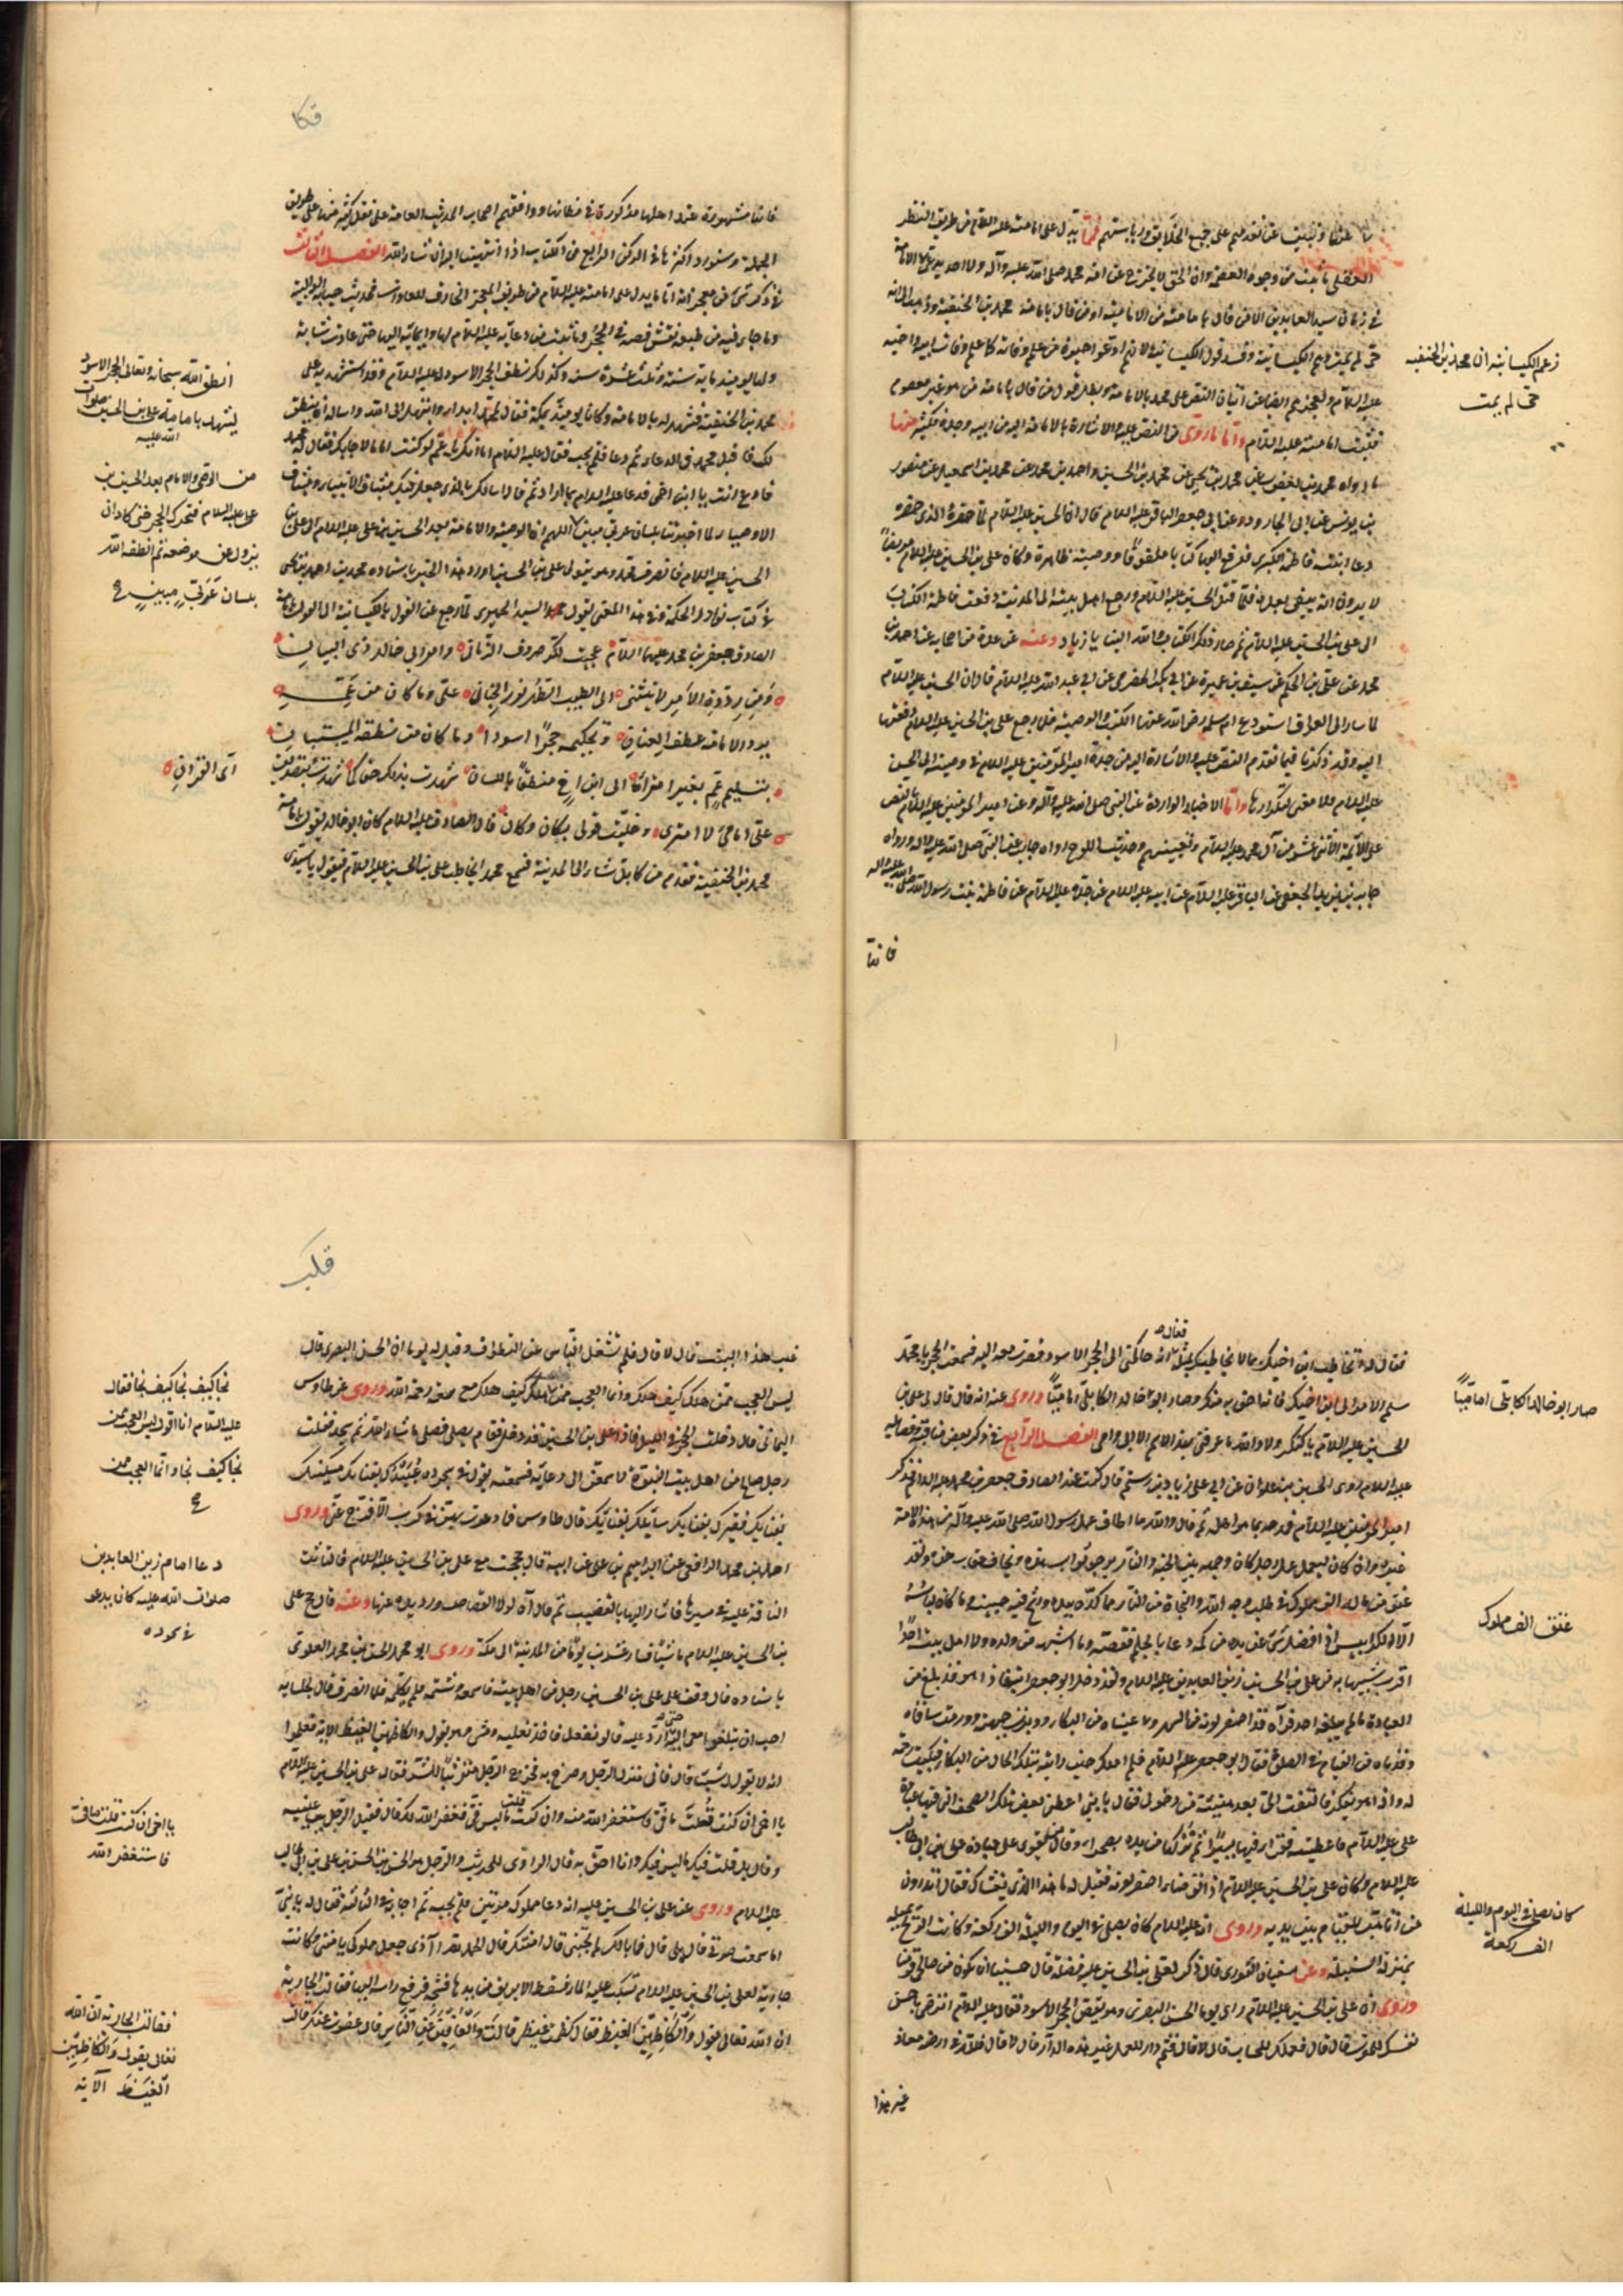 زعم الكيسانية ان محمد بن الحنفيه
حى لم يمت
على جميع الخلايق ورياستهم فمما يدل على امامته عليه السلام من طريق النظر
العقلى ما ثبت من وجوب العصمة وان الحق لا يخرج عن امة محمد صلى الله عليه وآله ولا احد يدعى الامامة
فى زمان سيد العابدين الا من قال بامامته من الامامية او من قال بامامة محمد بن الحنفية وذهب الى انه
حى لم يمت وهم الكيسانية وفسد قول الكيسانية
عليه السلام ولعجزهم ايضا عن اتيان النص على محمد بالامامة وبطل قول من قال بامامة من هو غير معصوم
فثبتت امامته عليه السلام واما ما روى من النص عليه والاشارة بالامامة اليه من ابيه وجده فكثير منها
ما رواه محمد بن يعقوب عن محمد بن يحيى عن محمد بن الحسين واحمد بن محمد عن محمد بن اسمعيل عن منصور
بن يونس عن ابى الجارود عن ابى جعفر الباقر عليه السلام قال ان الحسين عليه السلام لما حضره الذى حضره
دعا ابنته فاطمة الكبرى فدفع اليها كتابا ملفوفا ووصية ظاهرة وكان على بن الحسين عليه السلام مريضا
لا يرون انه يبقى بعده فلما قتل الحسين عليه السلام ورجع اهل بيته الى المدينة دفعت فاطمة الكتاب
الى على بن الحسين عليه السلام ثم صار ذلك الكتاب والله الينا يا زياد وعنه عن عدة من اصحابه عن احمد بن
محمد عن على بن الحكم عن سيف بن عميرة عن ابى بكر الحضرمى عن ابى عبد الله عليه السلام قال ان الحسين عليه السلام
لما سار الى العراق استودع ام سلمة رضى الله عنها الكتب والوصية فلما رجع على بن الحسين عليه السلام دفعتها
اليه وقد ذكرنا فيما تقدم النص عليه والاشارة اليه من جده امير المؤمنين عليه السلام فى وصيته الى الحسن
عليه السلام فلا معنى لتكرارها واما الاخبار الواردة عن النبى صلى الله عليه وآله وعن امير المؤمنين عليه السلام بالنص
على الائمة الاثنى عشر من آل محمد عليه السلام وتعيينهم وحديث اللوح رواه جابر عن النبى صلى الله عليه وآله ورواه
جابر بن يزيد الجعفى عن الباقر عليه السلام عن ابيه عليه السلام عن جده عليه السلام عن فاطمة بنت رسول الله صلى الله عليه وآله
فانها
قكا
فانها مشهورة عند اهلها مذكورة فى مظانها ووافقهم اصحاب الحديث العامة على نقل كثير منها على طريق
الجملة وسنورد اكثرها فى الركن الرابع من الكتاب اذا انتهينا اليه ان شاء الله الفصل الثالث
فى ذكر شئ من معجزاته اما ما يدل على امامته عليه السلام من طريق المعجز الخارق للعادات فحديث حبابة الوالبية
وما جاء فيه من طبعه بنقش فصه فى الحجر وما ثبت من دعائه عليه السلام لها وايمائه اليها حتى عادت شابة
ولها يومئذ ماية سنة وثلث عشرة سنة وكذلك نطق الحجر الاسود له عليه السلام وقد استشهد به على
محمد بن الحنفية فشهد له بالامامة وكانا يومئذ بمكة فقال لمحمد ابدا وابتهل الى الله واساله ان ينطق
لك فاقبل محمد فى الدعاء ثم دعا فلم يجب فقال عليه السلام اما انك يا عم لو كنت اماما لاجابك فقال له محمد
فادع انت يا ابن اخى فدعا عليه السلام بما اراد ثم قال اسالك بالذى جعل فيك ميثاق الانبياء وميثاق
الاوصياء لما اخبرتنا بلسان عربى مبين اللهم ان الوصية والامامة بعد الحسين بن على عليه السلام الى على بن
الحسين عليه السلام فانصرف محمد وهو يتولى على بن الحسين اورد هذا الخبر باسناده محمد بن احمد بن يحيى
فى كتاب نوادر الحكمة وفى هذا المعنى يقول السيد الحميرى لما رجع عن القول بالكيسانية الى القول بامامة
الصادق جعفر بن محمد عليهما السلام عجبت لكر صروف الزمان وامر ابى خالد ذى البيان
ومن رده الامر لا ينثنى الى الطيب الطهر نور الجنان على وما كان من عمه
برد الامامة عطف العنان وتحكيمه حجرا اسودا وما كان من منطقه المستبان
بتسليم عم بغير امتراء الى ابن اخ منطقا باللسان شهدت بذلك حقا كما شهدت بتصديق
آى القران
على امامى لا امترى وخليت قولى بكان وكان قال الصادق عليه السلام كان ابو خالد يقول بامامة
محمد بن الحنفية فقدم من كابل شاه الى المدينة فسمع محمدا يخاطب على بن الحسين عليه السلام فيقول يا سيدى
انطق الله سبحانه وتعالى الحجر الاسود
ليشهد بامامة على بن الحسين صلوات
الله عليه
من الوصى والامام بعد الحسين بن
على عليه السلام فتحرك الحجر حتى كاد ان
يزول عن موضعه ثم انطقه الله
بلسان عربى مبين ع
صار ابو خالد الكابلى اماميا
فقال له اتخاطب ابن اخيك بما لا يخاطبك بمثله فقال انه حاكمنى الى الحجر الاسود فصرت معه اليه فسمعت الحجر يا محمد
سلم الامر الى ابن اخيك فانه احق به منك وصار ابو خالد الكابلى اماميا وروى عنه انه قال قال لى على بن
الحسين عليه السلام يا كنكر ولا والله ما عرفنى بهذا الاسم الا ابى وامى الفصل الرابع فى ذكر بعض مناقبه وفضائله
عليه السلام روى الحسين بن علوان عن ابى على زياد بن رستم قال كنت عند الصادق جعفر بن محمد عليه السلام فذكر
امير المؤمنين عليه السلام فمدحه بما هو اهله ثم قال والله ما اطاق عمل رسول الله صلى الله عليه وآله من هذه الامة
غيره وان كان ليعمل عمل رجل كان وجهه بين الجنة والنار يرجو ثواب هذه ويخاف عقاب هذه ولقد
عتق الف مملوك
عتق من ماله الف مملوك فى طلب وجه الله والنجاة من النار مما كد بيديه ورشح فيه جبينه وما كان لباسه
الا الكرابيس اذا فضل شئ عن يده من كمه دعا بالجلم فقصه وما اشبهه من ولده ولا اهل بيته احدا
اقرب شبها به من على بن الحسين زين العابدين عليه السلام ولقد دخل ابو جعفر ابنه فاذا هو قد بلغ من
العبادة ما لم يبلغه احد فرآه قد اصفر لونه من السهر ورمصت عيناه من البكاء ودبرت جبهته وورمت ساقاه
وقدماه من القيام فى الصلوة فقال ابو جعفر عليه السلام فلم املك حين رايته بتلك الحال من البكاء فبكيت رحمة
له واذا هو يفكر فالتفت الى بعد هنيئة من دخولى فقال يا بنى اعطنى بعض تلك الصحف التى فيها عبادة
على عليه السلام فاعطيته فقرا فيها يسيرا ثم تركها من يده تضجرا وقال من يقوى على عبادة على بن ابى طالب
عليه السلام وكان على بن الحسين عليه السلام اذا توضا اصفر لونه فقيل له ما هذا الذى يغشاك فقال اتدرون
كان يصلى فى اليوم والليلة
الف ركعة
من اتاهب للقيام بين يديه وروى انه عليه السلام كان يصلى فى اليوم والليلة الف ركعة وكانت الريح تميله
بمنزلة السنبلة وعن سفيان الثورى قال ذكر لعلى بن الحسين عليه فضله قال حسبنا ان نكون من صالحى قومنا
وروى ان على بن الحسين عليه السلام راى يوما الحسن البصرى وهو يقص عند الحجر الاسود فقال عليه السلام اترضى يا حسن
نفسك للموت قال لا قال فعملك للحساب قال لا قال فثم دار للعمل غير هذه الدار قال لا قال فلله فى ارضه معاذ
غير هذا
قكب
غير هذا البيت قال لا قال فلم تشغل الناس عن الطواف وقيل له يوما ان الحسن البصرى قال
ليس العجب ممن هلك كيف هلك وانما العجب ممن نجا كيف نجا
وروى عن طاوس
اليمانى قال دخلت الحجر فى الليل فاذا على بن الحسين قد دخل فقام يصلى فصلى ما شاء الله ثم سجد فقلت
رجل صالح من اهل بيت النبوة لاسمعن الى دعائه فسمعته يقول فى سجوده عبيدك بفنائك مسكينك
بفنائك فقيرك بفنائك سائلك بفنائك قال طاوس فما دعوت بهن فى كرب الا فرج عنى وروى
احمد بن محمد الرافعى عن ابراهيم بن على عن ابيه قال حججت مع على بن الحسين عليه السلام فالتاثت
الناقة عليه فى سيرها فاشار اليها بالقضيب ثم قال آه لولا القصاص ورد يده عنها وعنه قال حج على
بن الحسين عليه السلام ماشيا فسار عشرين يوما من المدينة الى مكة وروى ابو محمد الحسن بن محمد العلوى
باسناده قال وقف على على بن الحسين رجل من اهل بيته فاسمعه وشتمه فلم يكلمه فلما انصرف قال لجلسائه
احب ان تبلغوا معى اليه حتى تسمعوا ردى عليه قالوا نفعل فاخذ نعليه ومشى وهو يقول والكاظمين الغيظ الاية فعلموا
انه لا يقول له شيئا قال فاتى منزل الرجل وصرخ به فخرج الرجل متوثبا للشر فقال على بن الحسين عليه السلام
يا اخى ان كنت قلت ما فى فاستغفر الله منه وان كنت قلت ما ليس فى فغفر الله لك قال فقبل الرجل بين عينيه
وقال بل قلت فيك ما ليس فيك وانا احق به قال الراوى للحديث والرجل هو الحسن بن الحسن بن على بن ابى طالب
عليه السلام وروى عن على بن الحسين عليه انه دعا مملوكه مرتين فلم يجبه ثم اجابه فى الثالثة فقال له يا بنى
اما سمعت صوتى قال بلى قال فما بالك لم تجبنى قال امنتك قال الحمد لله الذى جعل مملوكى يامننى وكانت
جارية لعلى بن الحسين عليه السلام تسكب عليه الماء فسقط الابريق من يدها فشجه فرفع راسه اليها فقالت الجارية
ان الله تعالى يقول والكاظمين الغيظ فقال كظمت غيظى قالت والعافين عن الناس قال عفوت عنك قالت
نجا كيف نجا فقال
عليه السلام انا اقول ليس العجب ممن
نجا كيف نجا وانما العجب ممن
ع
دعاء امام زين العابدين
صلوات الله عليه كان يدعو
فى سجوده
يا اخى ان كنت قلت ما فى
فاستغفر الله
فقالت الجارية ان الله
تعالى يقول والكاظمين
الغيظ الآية